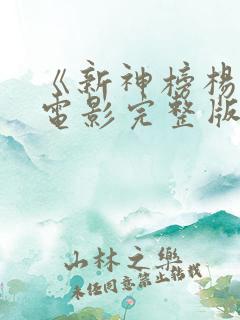 《新神榜楊
電影完整版
山林之樂
未经同意禁止转载